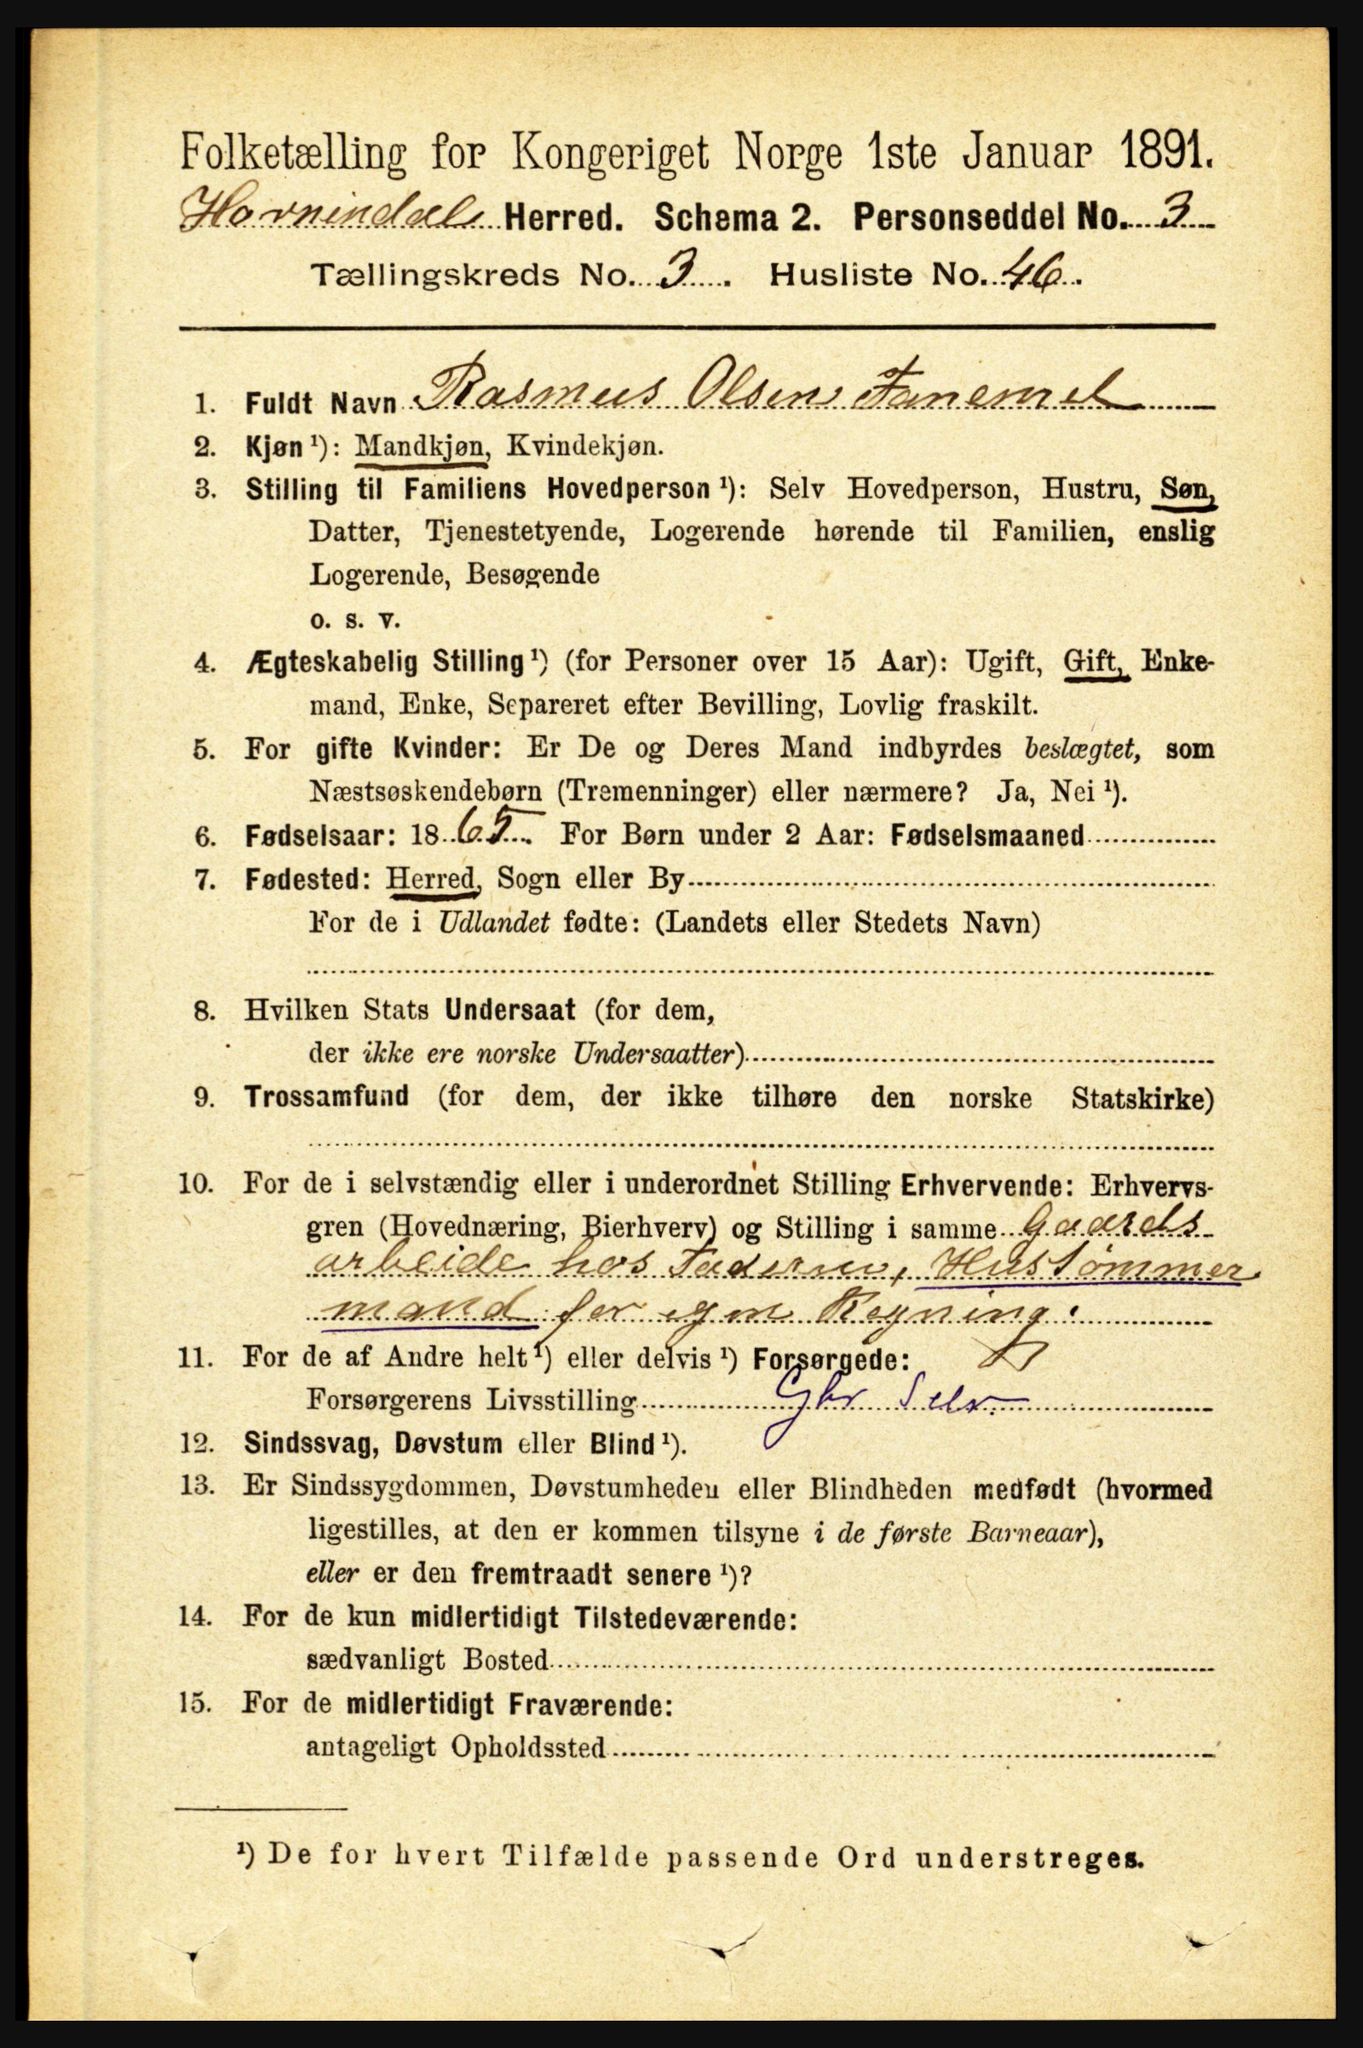 Folketælling for Kongeriget Norge 1ste Januar 1891.
Hornindal Herred. Schema 2. Personseddel No. 3
Tællingskreds No. 3. Husliste No. 46.
1. Fuldt Navn Rasmus Olsen Fanemel
2. Kjøn ¹): Mandkjøn, Kvindekjøn.
3. Stilling til Familiens Hovedperson ¹): Selv Hovedperson, Hustru, Søn,
Datter, Tjenestetyende, Logerende hørende til Familien, enslig
Logerende, Besøgende
o. s. v.
4. Ægteskabelig Stilling ¹) (for Personer over 15 Aar): Ugift, Gift, Enke-
mand, Enke, Separeret efter Bevilling, Lovlig fraskilt.
5. For gifte Kvinder: Er De og Deres Mand indbyrdes beslægtet, som
Næstsøskendebørn (Tremenninger) eller nærmere? Ja, Nei ¹).
6. Fødselsaar: 1865. For Børn under 2 Aar: Fødselsmaaned
7. Fødested: Herred, Sogn eller By
For de i Udlandet fødte: (Landets eller Stedets Navn)
8. Hvilken Stats Undersaat (for dem,
der ikke ere norske Undersaatter)
9. Trossamfund (for dem, der ikke tilhøre den norske Statskirke)
10. For de i selvstændig eller i underordnet Stilling Erhvervende: Erhvervs-
gren (Hovednæring, Bierhverv) og Stilling i samme Gaards
arbeide hos Faderen, Hustømmer
mand for egen Regning.
11. For de af Andre helt ¹) eller delvis ¹) Forsørgede:
Forsørgerens Livsstilling Gbr Selv.
12. Sindssvag, Døvstum eller Blind ¹).
13. Er Sindssygdommen, Døvstumheden eller Blindheden medfødt (hvormed
ligestilles, at den er kommen tilsyne i de første Barneaar),
eller er den fremtraadt senere ¹)?
14. For de kun midlertidigt Tilstedeværende:
sædvanligt Bosted
15. For de midlertidigt Fraværende:
antageligt Opholdssted
¹) De for hvert Tilfælde passende Ord understreges.